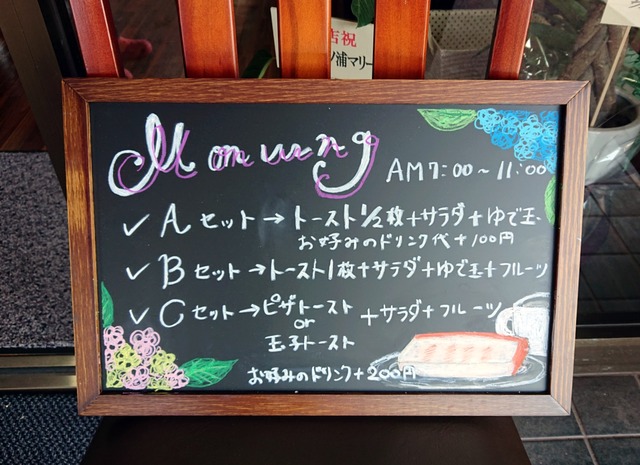 店祝
ノ浦マリー
Morning
AM7:00~11:00
✓Aセット→トースト1/2枚+サラダ+ゆで玉
お好みのドリンク代+100円
✓Bセット→トースト1枚+サラダ+ゆで玉+フルーツ
✓Cセット→ピザトースト
or
玉子トースト
+サラダ+フルーツ
お好みのドリンク+200円